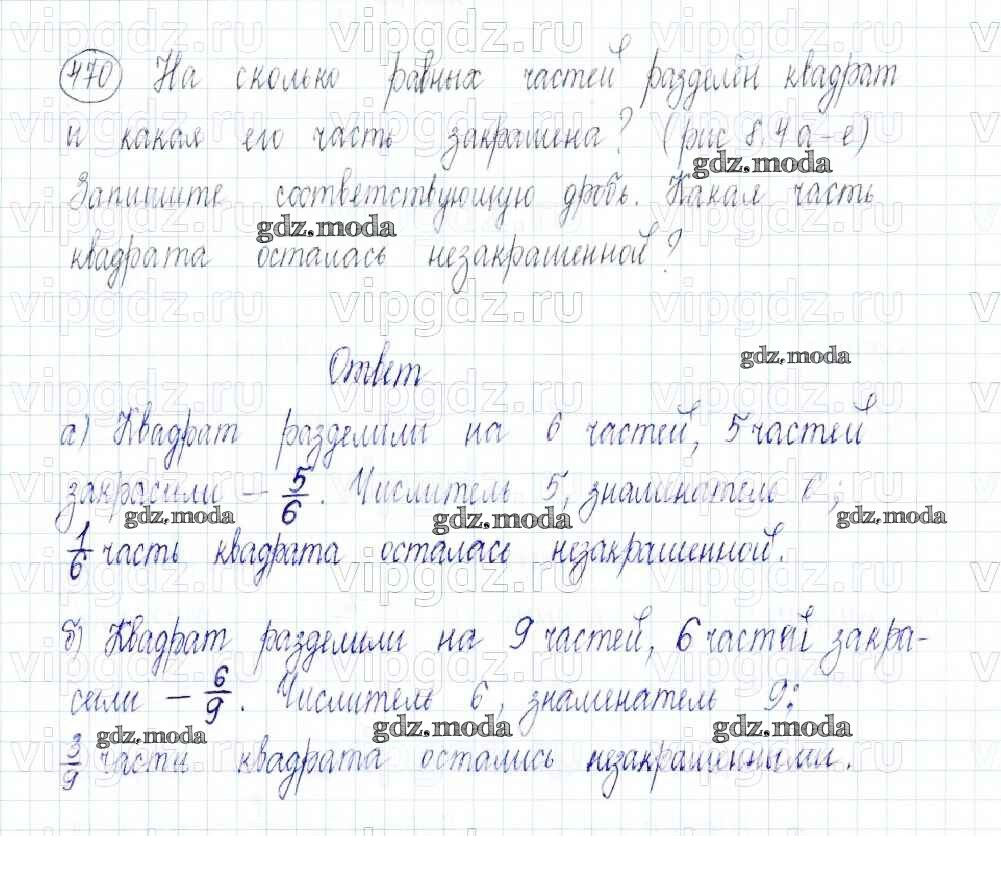 470 На сколько равных частей разделён квадрат
и какая его часть закрашена? (рис 8,4 а-е)
gdz.moda
Запишите соответствующую дробь. Какая часть
gdz.moda
квадрата осталась незакрашенной?
Ответ
gdz.moda
а) Квадрат разделили на 6 частей, 5 частей
закрасили – 5/6. Числитель 5, знаменатель 6;
gdz.moda gdz.moda gdz.moda
1/6 часть квадрата осталась незакрашенной.
б) Квадрат разделили на 9 частей, 6 частей закра-
сили – 6/9. Числитель 6, знаменатель 9;
gdz.moda gdz.moda gdz.moda
3/9 части квадрата остались незакрашенными.
vipgdz.ru